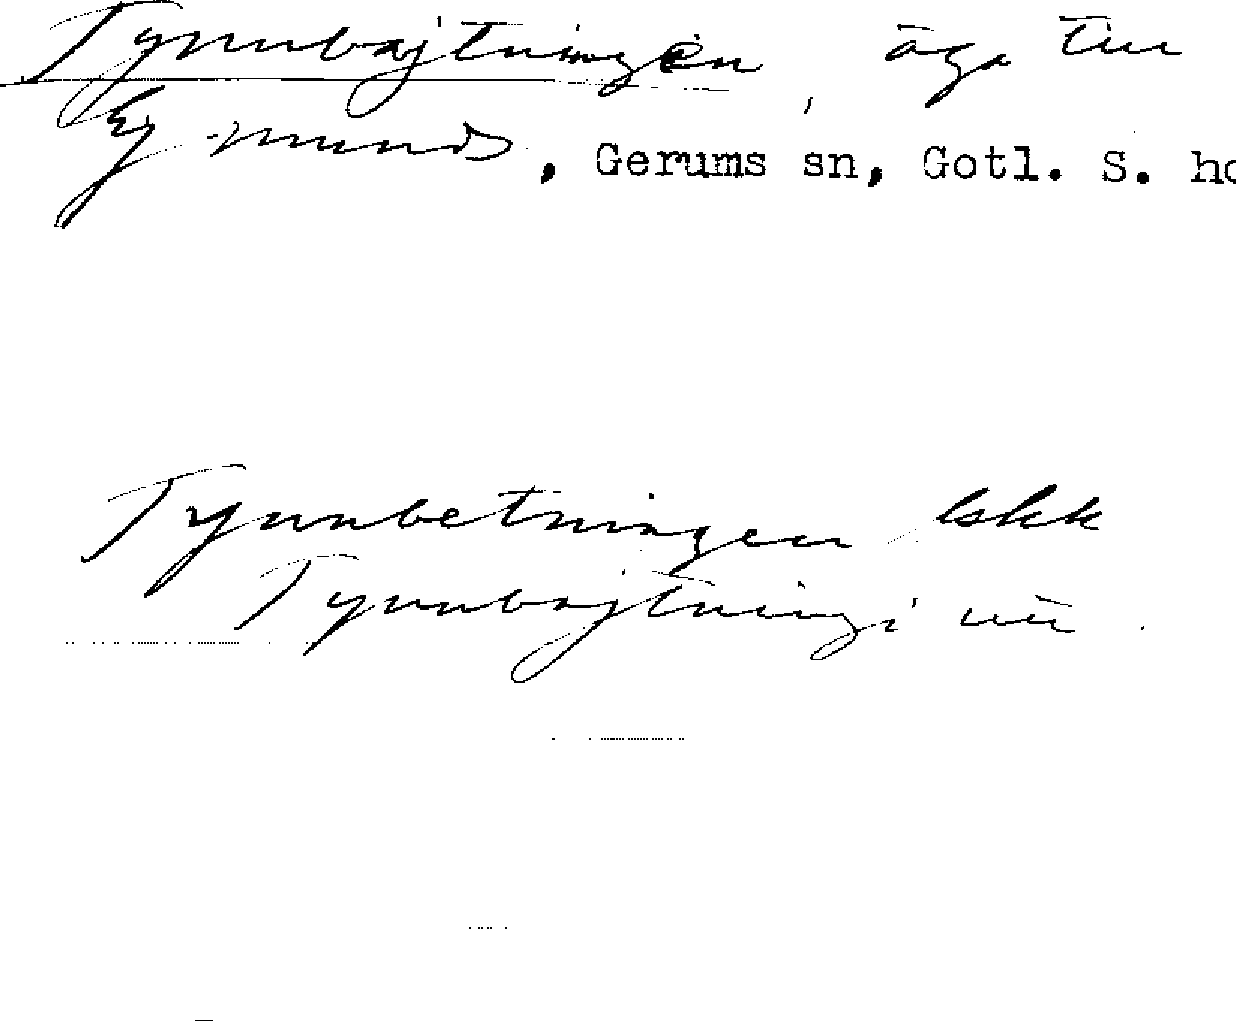 Tynnbajtningen, äga till
Ejmunds, Gerums sn, Gotl. S.
Tynnbetningen lskk
Tynnbajtningi